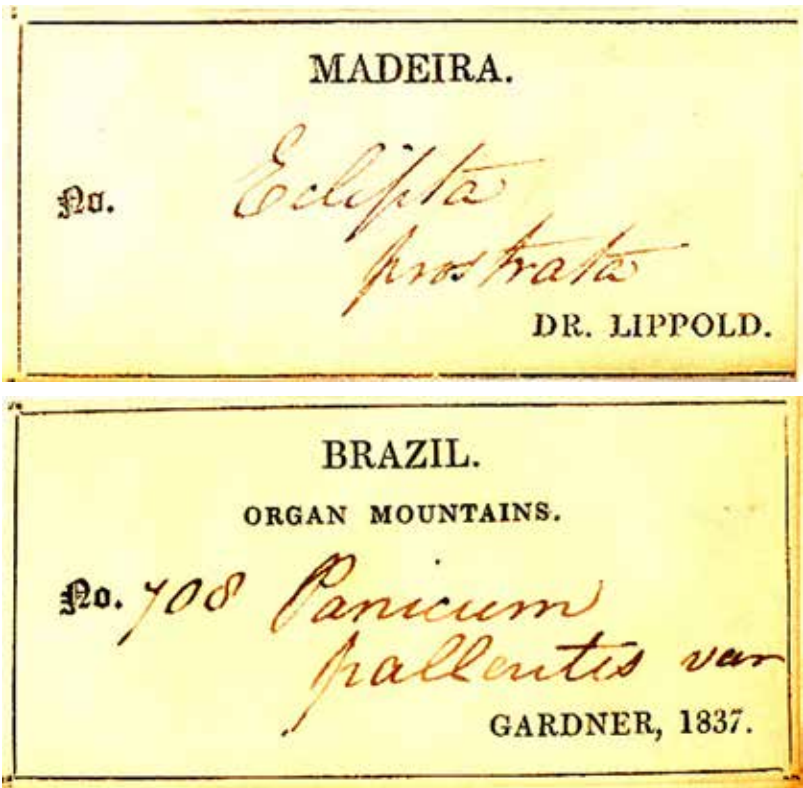 MADEIRA.
No. Eclipta
prostrata
DR. LIPPOLD.
BRAZIL.
ORGAN MOUNTAINS.
No. 708 Panicum
pallentis var
GARDNER, 1837.